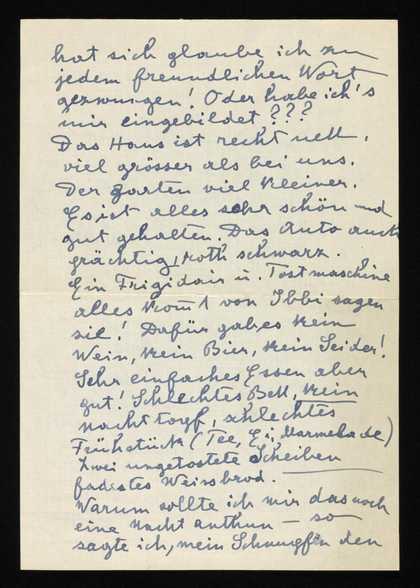 hat sich glaube ich zu
jedem freundlichen Wort
gezwungen! Oder habe ich's
mir eingebildet???
Das Haus ist recht nett,
viel grösser als bei uns.
Der Garten viel kleiner.
Es ist alles sehr schön und
gut gehalten. Das Auto auch
prächtig, roth schwarz.
Ein Frigidair u. Tostmaschine
alles komt von Ibbi sagen
sie! Dafür gab es kein
Wein, kein Bier, kein Seider!
Sehr einfaches Essen aber
gut! Schlechtes Bett, kein
nachttopf, schlechtes
Frühstück (Tee, Ei, Marmelade)
zwei ungetostete Scheiben
fadestes Weissbrod.
Warum sollte ich mir das noch
eine Nacht anthun — so
sagte ich, mein Schnupfen den